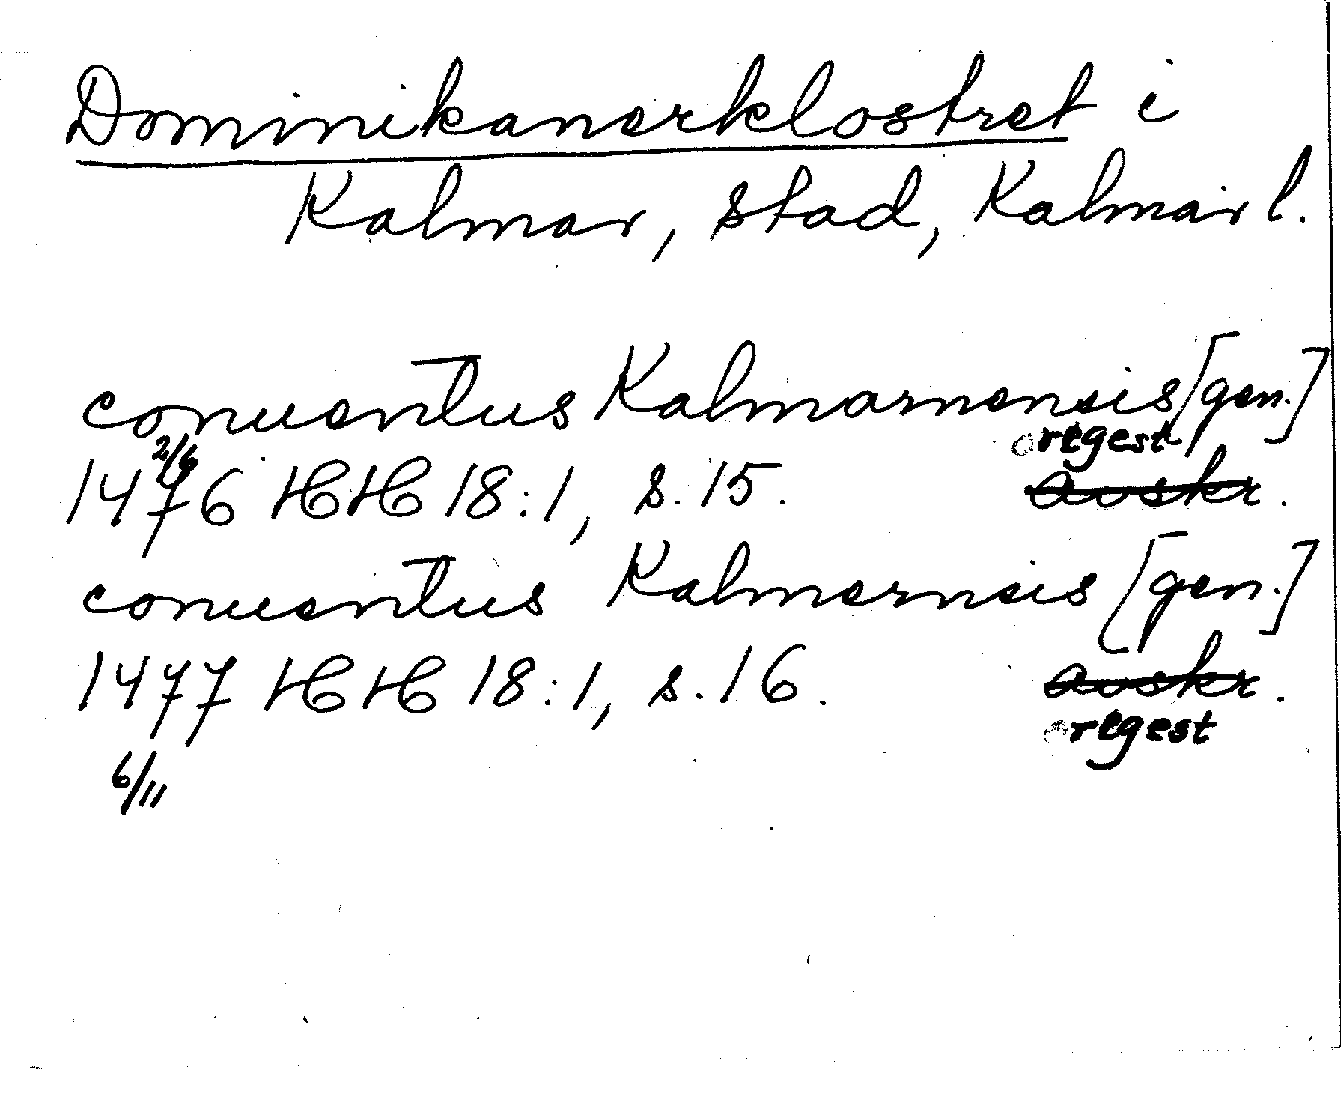 Dominikanerklostret i
Kalmar, stad, Kalmar l.
conuentus Kalmarnensis [gen.]
2/6 regest
1476 HH 18:1, s. 15. avskr.
conuentus Kalmernsis [gen.]
1477 HH 18:1, s. 16. avskr.
regest
6/11